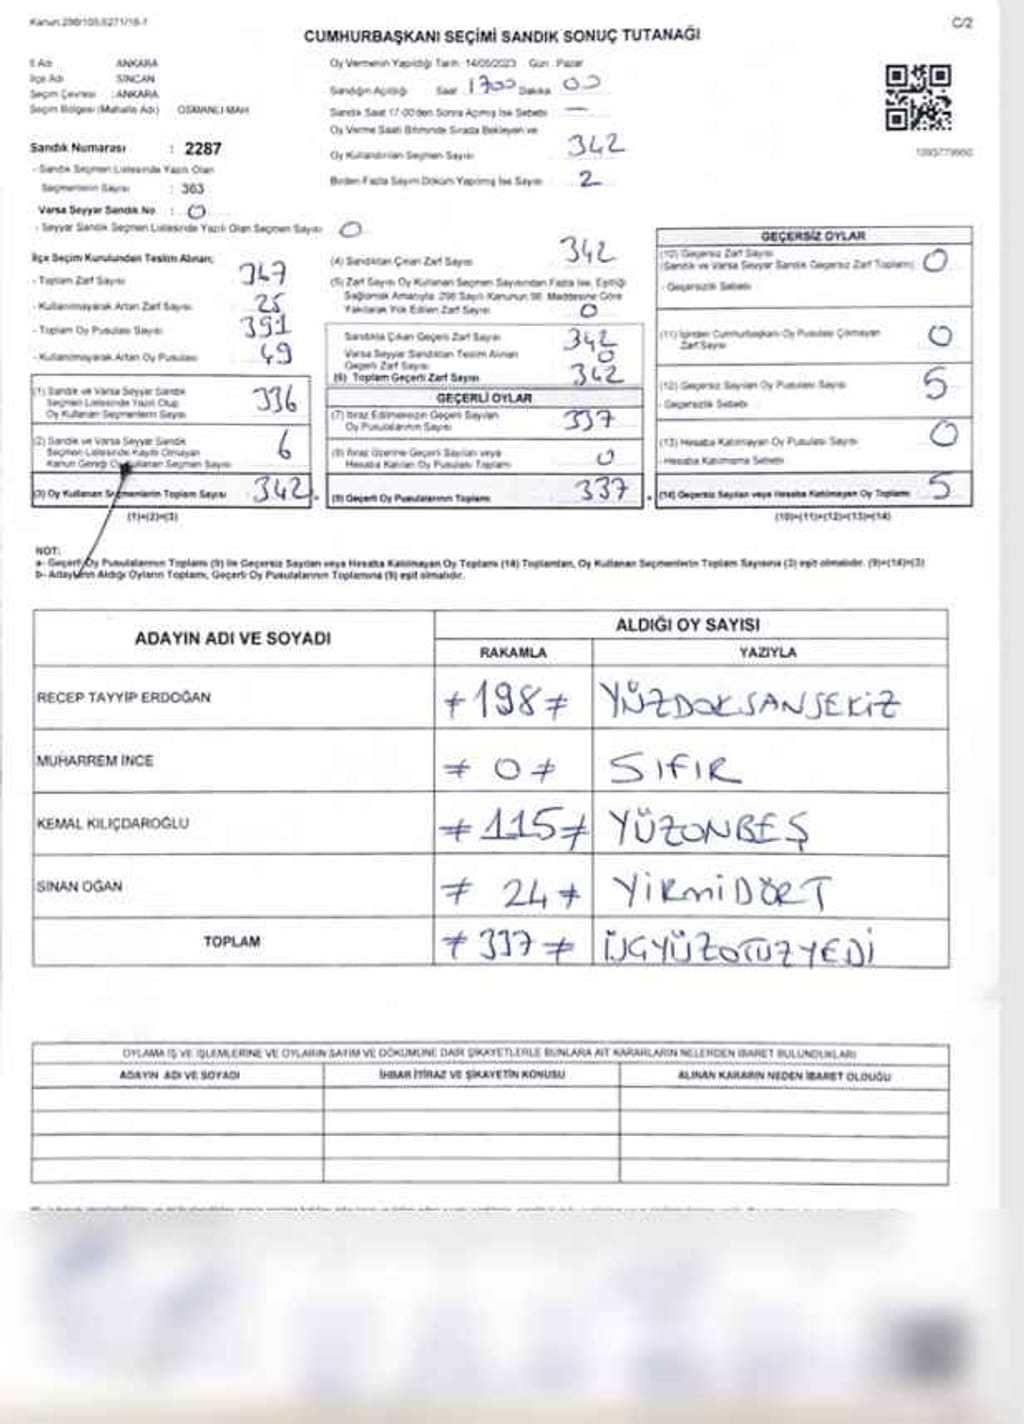 Kanun:298/103,6271/16-7
C/2
CUMHURBAŞKANI SEÇİMİ SANDIK SONUÇ TUTANAĞI
İl Adı : ANKARA
İlçe Adı : SİNCAN
Seçim Çevresi : ANKARA
Seçim Bölgesi (Mahalle Adı) OSMANLI MAH.
Sandık Numarası : 2287
- Sandık Seçmen Listesinde Yazılı Olan
Seçmenlerin Sayısı : 363
Varsa Seyyar Sandık No : 0
- Seyyar Sandık Seçmen Listesinde Yazılı Olan Seçmen Sayısı 0
Oy Vermenin Yapıldığı Tarih: 14/05/2023 Gün : Pazar
Sandığın Açıldığı Saat 1700 Dakika 00
Sandık Saat 17:00'den Sonra Açılmış İse Sebebi —
Oy Verme Saati Bitiminde Sırada Bekleyen ve
Oy Kullandırılan Seçmen Sayısı 342
Birden Fazla Sayım Döküm Yapılmış İse Sayısı 2
İlçe Seçim Kurulundan Teslim Alınan;
- Toplam Zarf Sayısı 367
- Kullanılmayarak Artan Zarf Sayısı 25
- Toplam Oy Pusulası Sayısı 391
- Kullanılmayarak Artan Oy Pusulası 49
(1) Sandık ve Varsa Seyyar Sandık
Seçmen Listesinde Yazılı Olup
Oy Kullanan Seçmenlerin Sayısı 336
(2) Sandık ve Varsa Seyyar Sandık
Seçmen Listesinde Kayıtlı Olmayan
Kanun Gereği Oy Kullanan Seçmen Sayısı 6
(3) Oy Kullanan Seçmenlerin Toplam Sayısı 342
(1)+(2)=(3)
(4) Sandıktan Çıkan Zarf Sayısı 342
(5) Zarf Sayısı Oy Kullanan Seçmen Sayısından Fazla İse, Eşitliği
Sağlamak Amacıyla 298 Sayılı Kanunun 98. Maddesine Göre
Yakılarak Yok Edilen Zarf Sayısı 0
Sandıkta Çıkan Geçerli Zarf Sayısı 342
Varsa Seyyar Sandıktan Teslim Alınan
Geçerli Zarf Sayısı 0
(6) Toplam Geçerli Zarf Sayısı 342
GEÇERLİ OYLAR
(7) İtiraz Edilmeksizin Geçerli Sayılan
Oy Pusulalarının Sayısı 337
(8) İtiraz Üzerine Geçerli Sayılan veya
Hesaba Katılan Oy Pusulası Toplamı 0
(9) Geçerli Oy Pusulalarının Toplamı 337
GEÇERSİZ OYLAR
(10) Geçersiz Zarf Sayısı 0
(Sandık ve Varsa Seyyar Sandık Geçersiz Zarf Toplamı)
- Geçersizlik Sebebi
(11) İçinden Cumhurbaşkanı Oy Pusulası Çıkmayan
Zarf Sayısı 0
(12) Geçersiz Sayılan Oy Pusulası Sayısı 5
- Geçersizlik Sebebi
(13) Hesaba Katılmayan Oy Pusulası Sayısı 0
- Hesaba Katılmama Sebebi
(14) Geçersiz Sayılan veya Hesaba Katılmayan Oy Toplamı 5
(10)+(11)+(12)+(13)=(14)
NOT:
a- Geçerli Oy Pusulalarının Toplamı (9) ile Geçersiz Sayılan veya Hesaba Katılmayan Oy Toplamı (14) Toplamları, Oy Kullanan Seçmenlerin Toplam Sayısına (3) eşit olmalıdır. (9)+(14)=(3)
b- Adayların Aldığı Oyların Toplamı, Geçerli Oy Pusulalarının Toplamına (9) eşit olmalıdır.
ADAYIN ADI VE SOYADI
ALDIĞI OY SAYISI
RAKAMLA YAZIYLA
RECEP TAYYİP ERDOĞAN ≠198≠ YÜZDOKSANSEKİZ
MUHARREM İNCE ≠ 0≠ SIFIR
KEMAL KILIÇDAROĞLU ≠115≠ YÜZONBEŞ
SİNAN OĞAN ≠ 24≠ YİRMİDÖRT
TOPLAM ≠337≠ ÜÇYÜZOTUZYEDİ
OYLAMA İŞ VE İŞLEMLERİNE VE OYLARIN SAYIM VE DÖKÜMÜNE DAİR ŞİKAYETLERLE BUNLARA AİT KARARLARIN NELERDEN İBARET BULUNDUKLARI
ADAYIN ADI VE SOYADI İHBAR İTİRAZ VE ŞİKAYETİN KONUSU ALINAN KARARIN NEDEN İBARET OLDUĞU